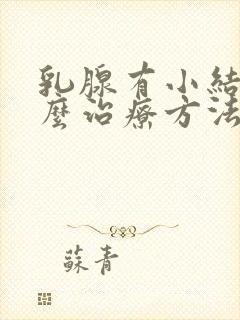 乳腺有小結
麼治療方法
蘇青